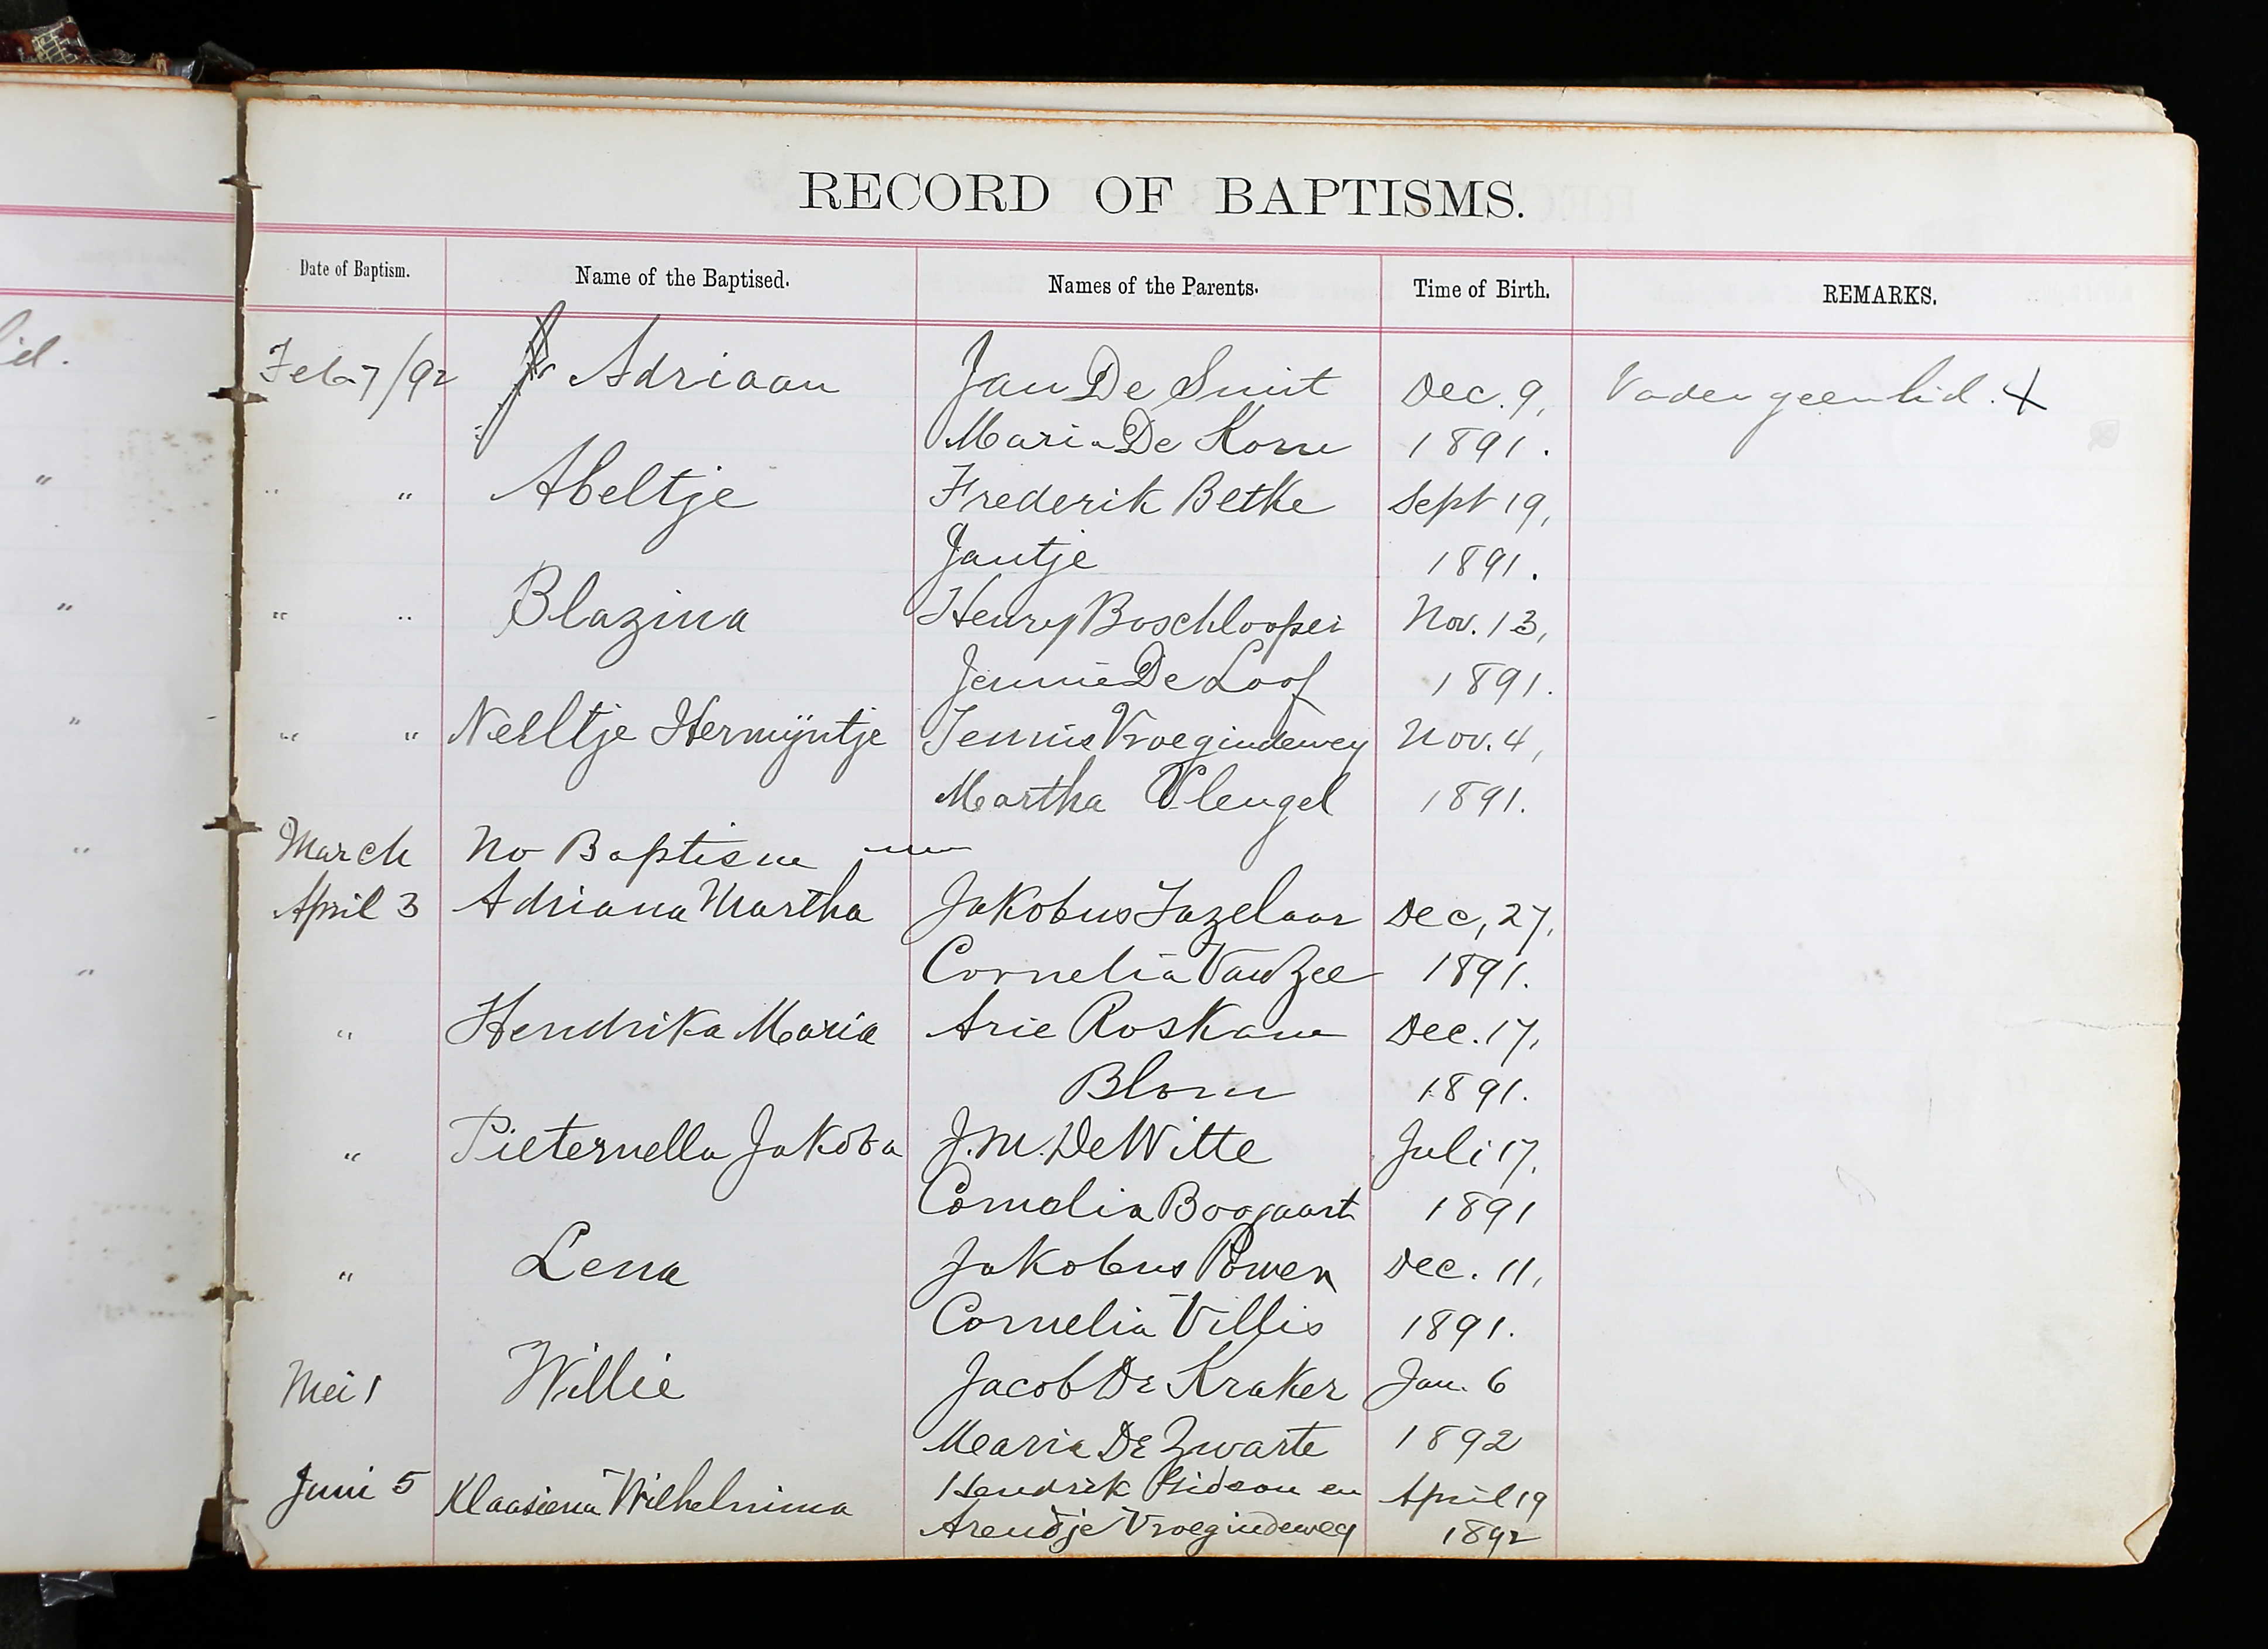 RECORD OF BAPTISMS.
Date of Baptism. Name of the Baptised. Names of the Parents. Time of Birth. REMARKS.
Feb 7/92 Adriaan Jan De Smit Dec. 9, Vader geen lid. X
Maria De Korne 1891.
" " Abeltje Frederik Betke Sept 19,
Jantje 1891.
" " Blazina Henry Boschlooper Nov. 13,
Jennie De Loof 1891.
" " Neeltje Hermijntje Tennis Vroegindewey Nov. 4,
Martha Vlengel 1891.
March No Baptism
April 3 Adriana Martha Jakobus Fazelaar Dec, 27,
Cornelia Van Zee 1891.
" Hendrika Maria Arie Roskam Dec. 17,
Blom 1891.
" Pieternella Jakoba J. M. De Witte Juli 17,
Cornelia Boogaart 1891
" Lena Jakobus Dec. 11,
Cornelia Villis 1891.
Mei 1 Willie Jacob De Kraker Jan. 6
Maria De Zwarte 1892
Juni 5 Klaasiena Wilhelmina Hendrik en April 19
Arendje Vroegindeweg 1892